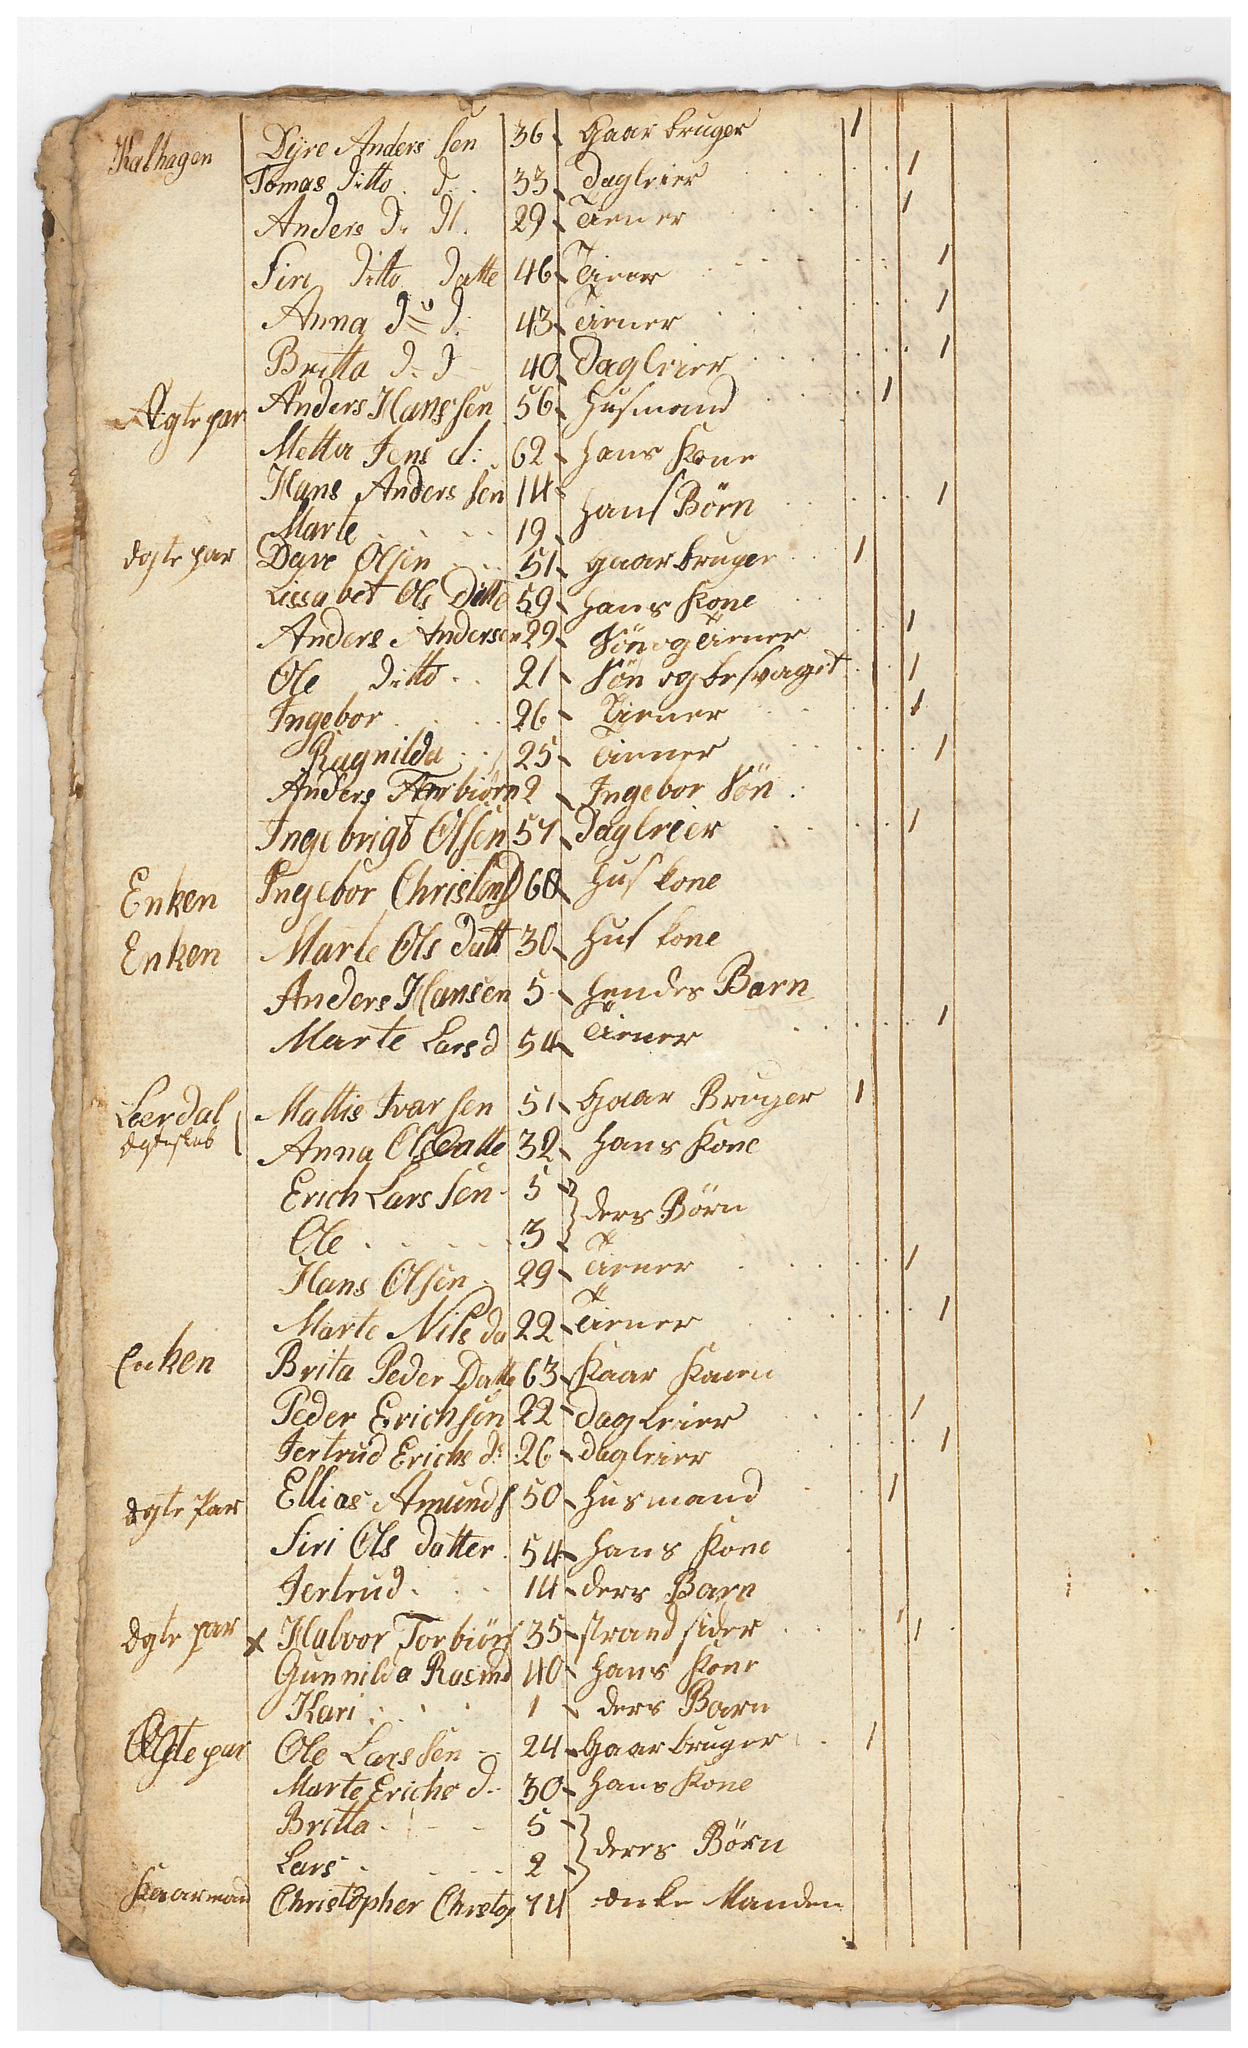 Kalhagen Dyre Anders Sen 36 Gaar bruger 1
Tomas Ditto d. 33 Dagleier 1
Anders d. d. 29 Tiener 1
Siri Ditto Datte 46 Tiener 1
Anna do d. 43 Tiener 1
Britta d. d 40 Dagleier 1
Ægte par Anders Hans sen 56 Husmand 1
Metta Jens d: 62 hans Kone
Hans Anders sen 14 hans Børn 1
Marte 19
ægte par Dyre Olsen 51 gaar bruger 1
Lissabet Ols Datte 59 hans Kone
Anders Andersen 29 Søn og Tiener 1
Ole ditto 21 Søn og besvaget 1
Ingebor 26 Tiener 1
Ragnilda 25 Tiener 1
Anders Torbiørn 2 Ingebor Søn
Ingebrigt Olsen 57 Dagleier 1
Enken Ingebor Christens D 68 hus kone
Enken Marte Ols Datt 30 hus kone
Anders Hansen 5 hendes Barn
Marte Lars d 54 Tiener 1
Leerdal Mattis Ivar sen 51 Gaar Bruger 1
ægteskab Anna Ols Datte 32 hans Kone
Erich Lars sen 5
Ole 3 } ders Børn
Hans Olsen 29 Tiener 1
Marte Nils da 22 Tiener 1
Enken Brita Peder Datte 63 Kaar Kaane
Peder Erichsen 22 dagleier 1
Jertrud Erichs d: 26 dagleier 1
ægte Par Ellias Amunds 50 Husmand 1
Siri Ols datter 54 hans Kone
Jertrud 14 ders Barn
ægte par x Halvor Torbiørs 35 strand sider 1
Gunnilda Rasmd 40 hans Kone
Kari 1 ders Barn
Ægte par Ole Lars sen 24 Gaar bruger 1
Marte Erichs d. 30 hans Kone
Britta 5
Lars 2 } deres Børn
Kaarmand Christopher Christop 74 Enke Manden